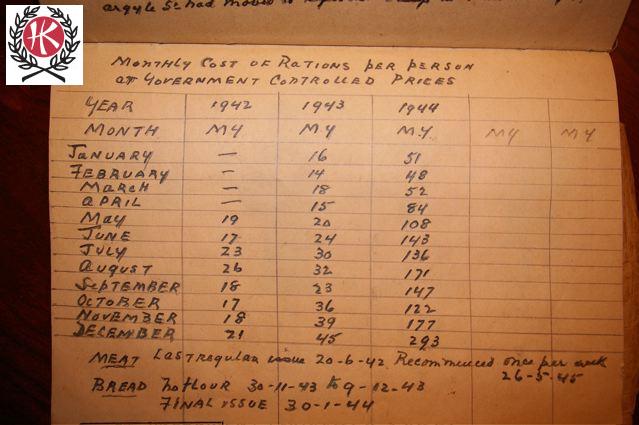 argyle St had moved to
HK
MONTHLY COST OF RATIONS PER PERSON
AT GOVERNMENT CONTROLLED PRICES
YEAR 1942 1943 1944
MONTH MY MY M.Y. MY MY
JANUARY — 16 51
FEBRUARY — 14 48
MARCH — 18 52
APRIL — 15 84
MAY 19 20 108
JUNE 17 24 143
JULY 23 30 136
AUGUST 26 32 171
SEPTEMBER 18 23 147
OCTOBER 17 36 122
NOVEMBER 18 39 177
DECEMBER 21 45 293
MEAT Last regular issue 20-6-42 Recommenced once per week
26-5-45
BREAD no flour 30-11-43 to 9-12-43
FINAL ISSUE 30-1-44